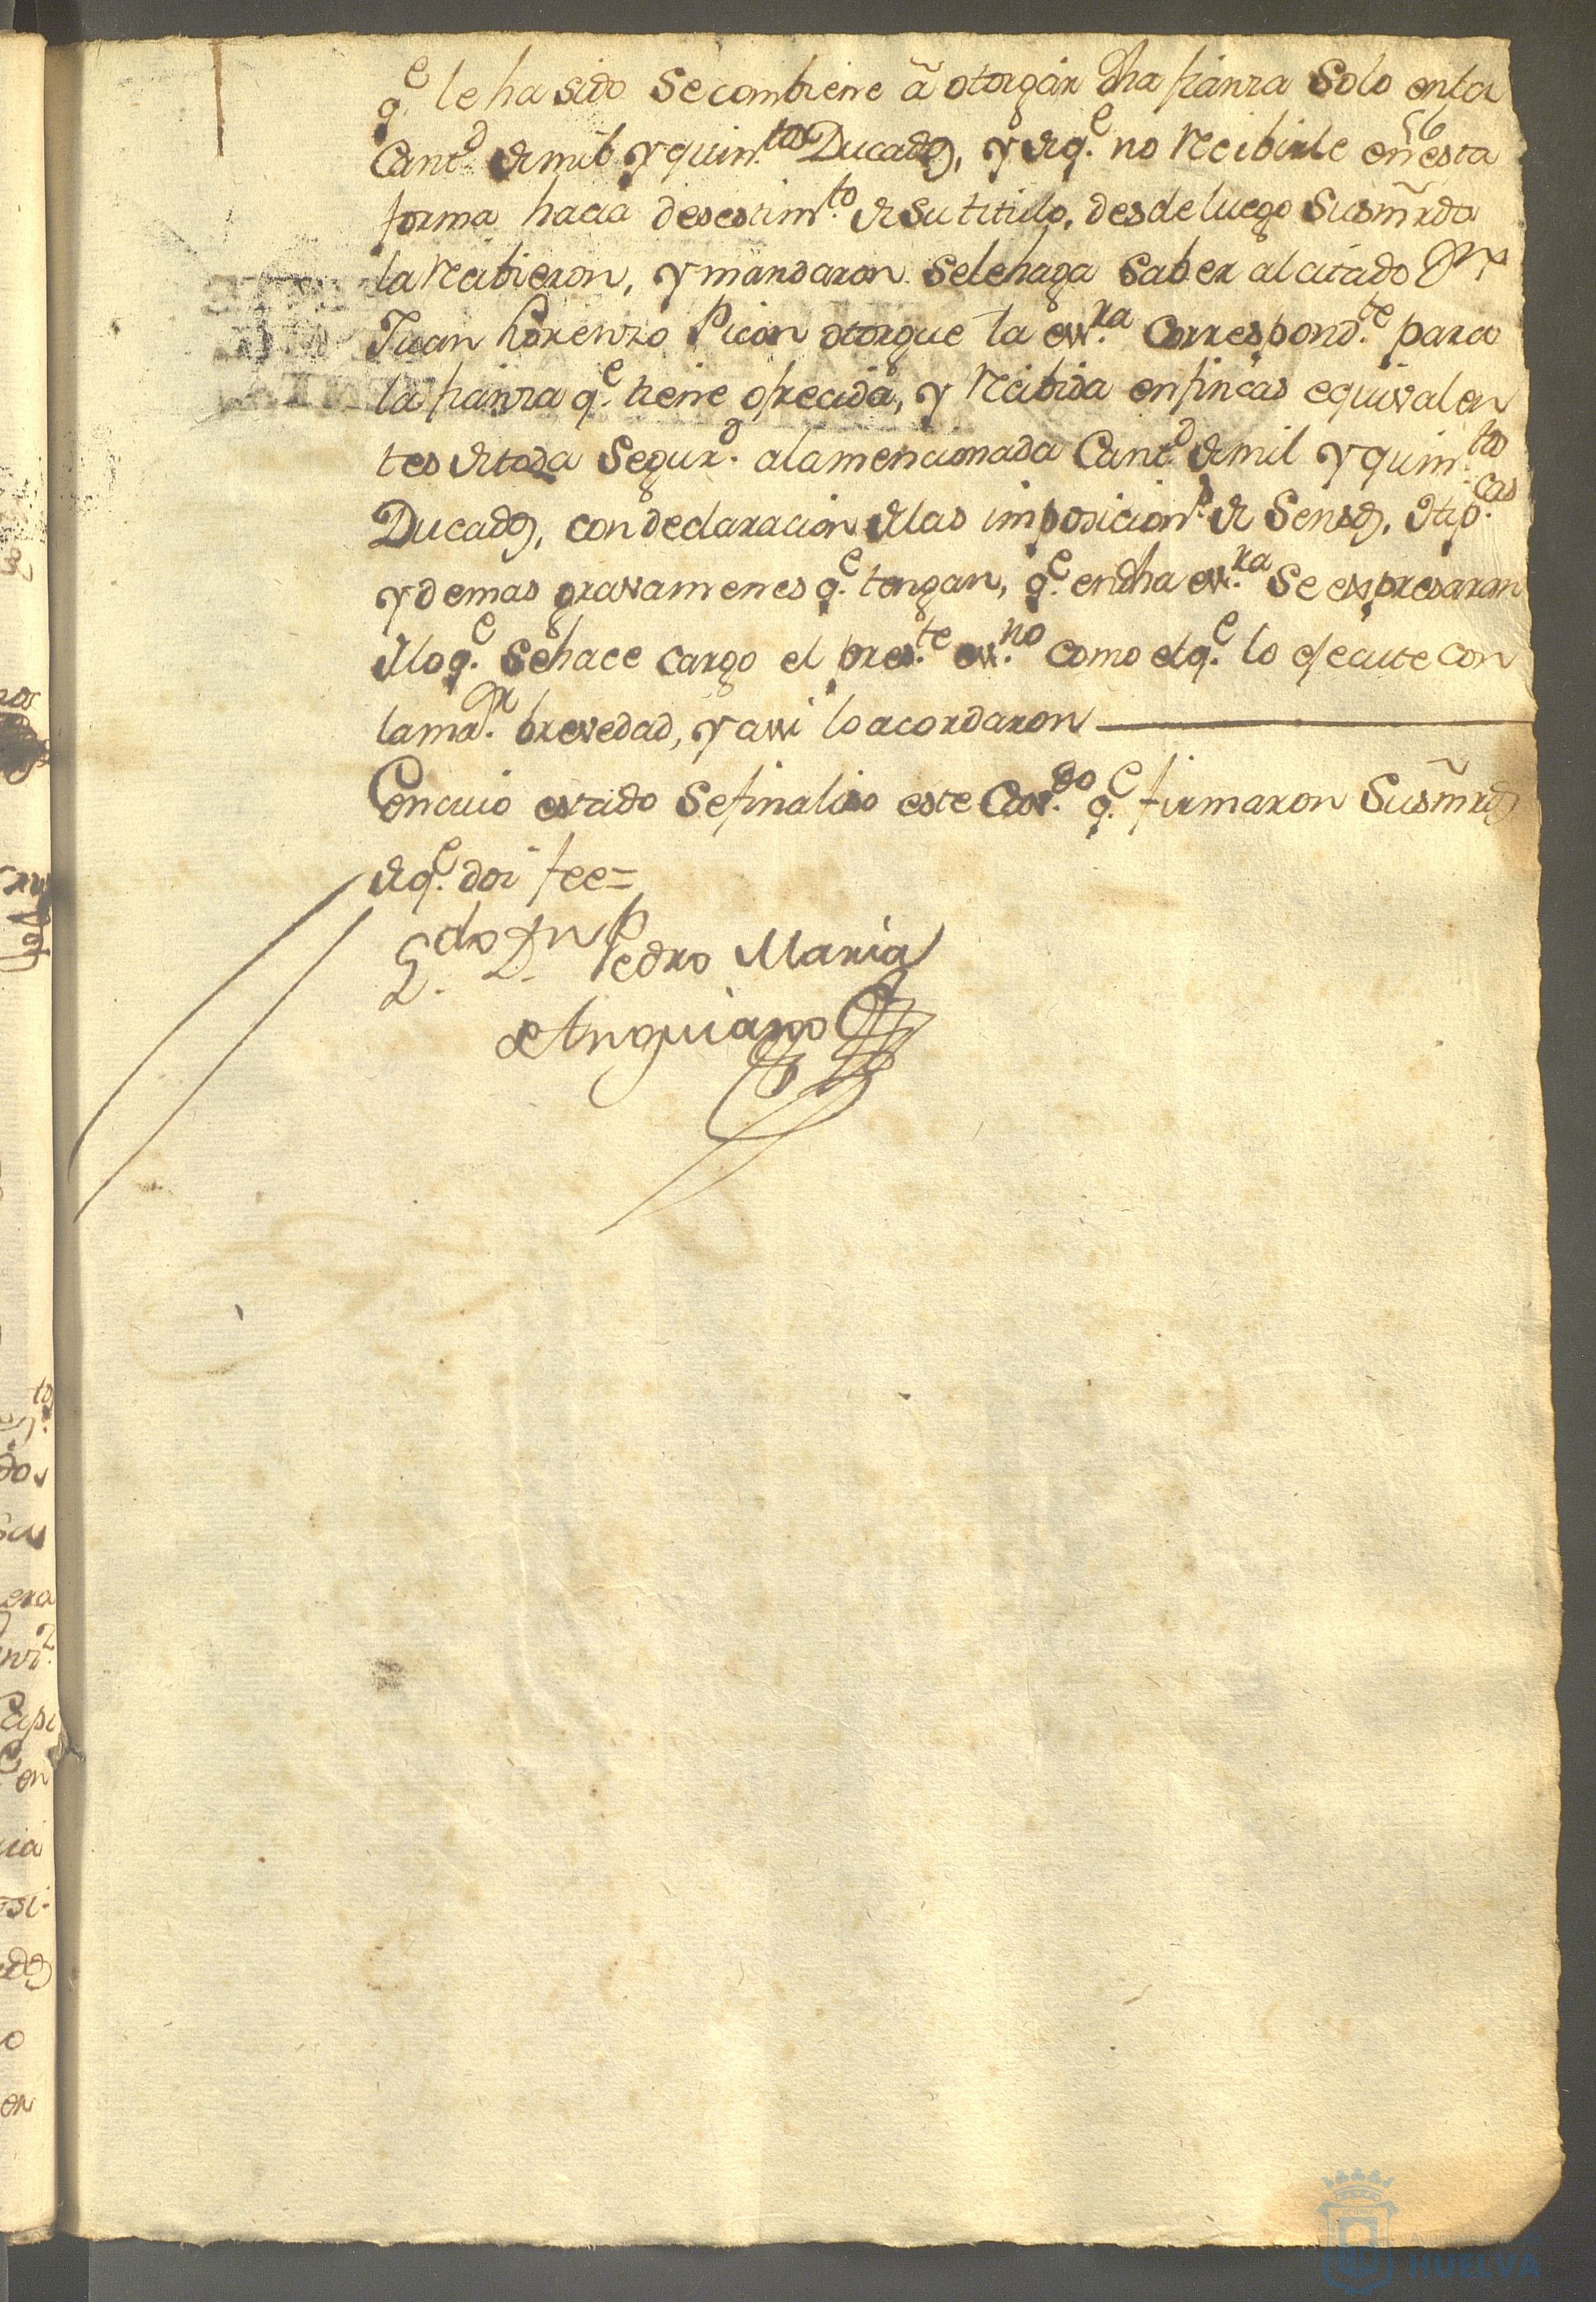 q.e le ha sido se combiene â otorgár dha fianza solo en la
56
Cant.d de mil y quin.tos Ducados, y de q.e no recibirle en esta
forma hacia desestim.to de su titulo, desde luego sus mrds
la recibieron, y mandaron se le haga saber al citado Dn
Juan Lorenzo Picon otorgue la ess.ra correspond.te para
la fianza q.e tiene ofrecida, y recibida en fincas equivalen
tes de toda segur.d a la mencionada Cant.d de mil y quin.tos
Ducados, con declaracion de las imposicion.s de Sensos, Hip.cas
y demas gravamenes q.e tengan, q.e en dha ess.ra se expresaran
de lo q.e se hace cargo el pres.te ess.no como el q.e lo ejecute con
la ma.or brevedad, y assi lo acordaron
En cuio estado se finalizo este Cav.do q.e firmaron sus mrds
de q.e doi fee=
L.do D.n Pedro Maria
de Anguiano
HUELVA